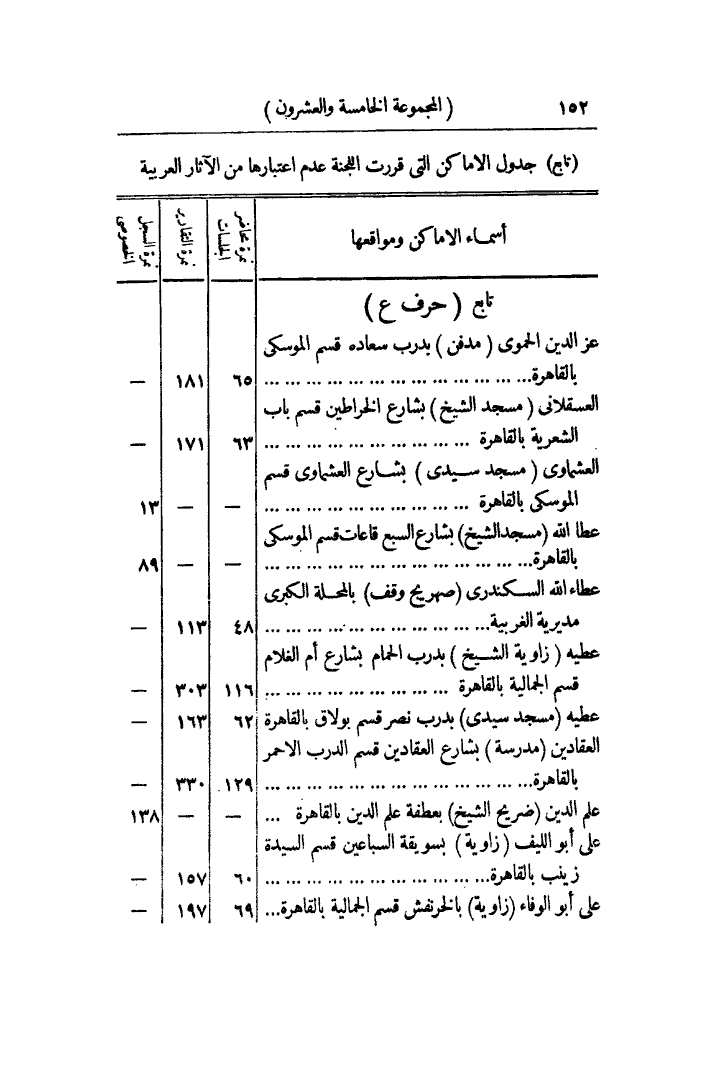 ١٥٢ ( المجموعة الخامسة والعشرون )
(تابع) جدول الاماكن التى قررت اللجنة عدم اعتبارها من الآثار العربية
أسماء الاماكن ومواقعها | نمرة محاضر الجلسات | نمرة التقارير | نمرة السجل الخصوصى
تابع ( حرف ع )
عز الدين الحموى ( مدفن ) بدرب سعاده قسم الموسكى
بالقاهرة... ... ... ... ... ... ... ... ... ... ... ... ... ٦٥ ١٨١ —
العسقلانى ( مسجد الشيخ ) بشارع الخراطين قسم باب
الشعرية بالقاهرة ... ... ... ... ... ... ... ... ... ... ٦٣ ١٧١ —
العشماوى ( مسجد سيدى ) بشارع العشماوى قسم
الموسكى بالقاهرة ... ... ... ... ... ... ... ... ... ... — — ١٣
عطا الله (مسجد الشيخ) بشارع السبع قاعات قسم الموسكى
بالقاهرة... ... ... ... ... ... ... ... ... ... ... ... ... — — ٨٩
عطاء الله السكندرى (صهريج وقف) بالمحلة الكبرى
مديرية الغربية... ... ... ... ... ... ... ... ... ... ... ٤٨ ١١٣ —
عطيه ( زاوية الشيخ ) بدرب الحمام بشارع أم الغلام
قسم الجمالية بالقاهرة ... ... ... ... ... ... ... ... ... ١١٦ ٣٠٣ —
عطيه (مسجد سيدى) بدرب نصر قسم بولاق بالقاهرة ٦٢ ١٦٣ —
العقادين (مدرسة ) بشارع العقادين قسم الدرب الاحمر
بالقاهرة... ... ... ... ... ... ... ... ... ... ... ... ... ١٢٩ ٣٣٠ —
علم الدين (ضريح الشيخ) بعطفة علم الدين بالقاهرة ... — — ١٣٨
على أبو الليف ( زاوية ) بسويقة السباعين قسم السيدة
زينب بالقاهرة... ... ... ... ... ... ... ... ... ... ... ٦٠ ١٥٧ —
على أبو الوفاء (زاوية) بالخرنفش قسم الجمالية بالقاهرة... ٦٩ ١٩٧ —